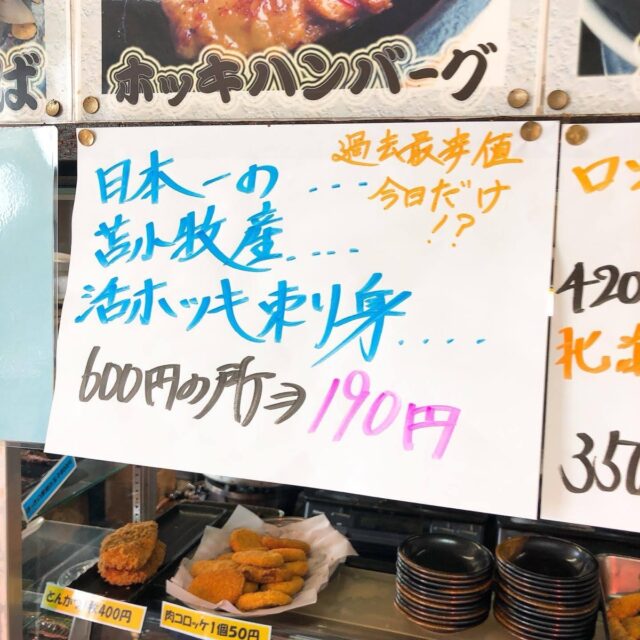 ば
ホッキハンバーグ
過去最安値
今日だけ
!?
日本一の....
苫小牧産....
活ホッキ刺り身....
600円の所⇒190円
ロ
420
北海
350
とんかつ1枚400円
肉コロッケ1個50円